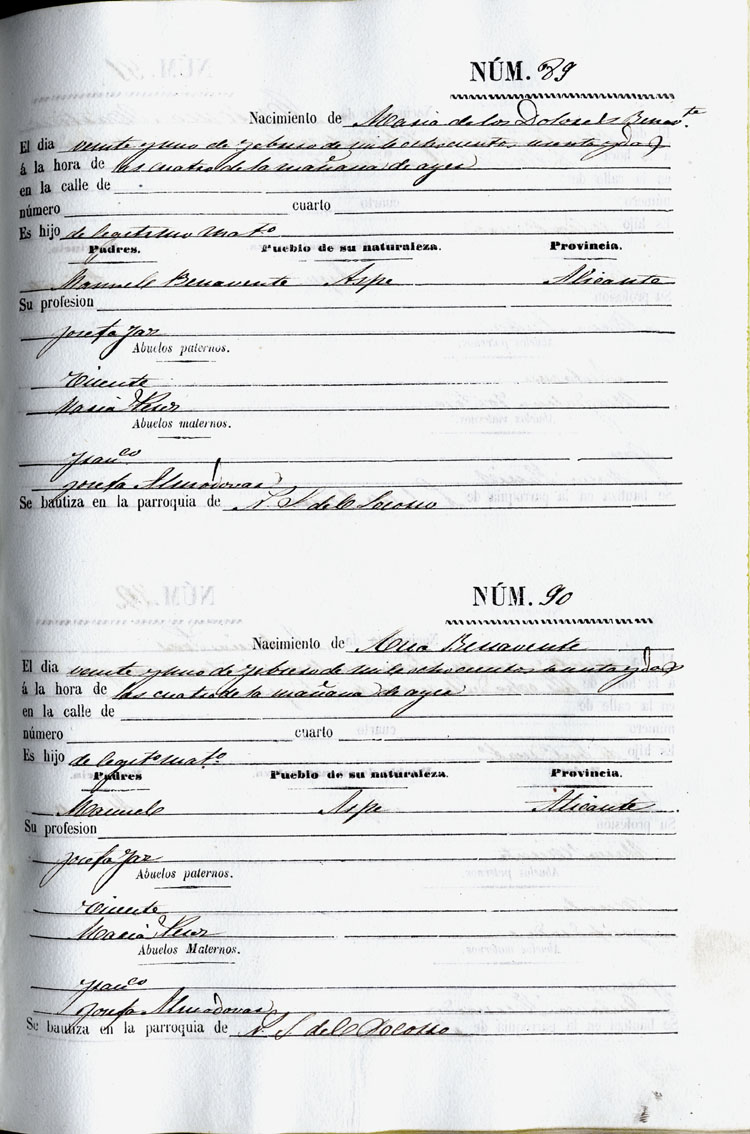 NÚM. 89
Nacimiento de Maria de los Dolores Benav.te
El dia veinte y uno de febrero de mil ochocientos y dos
á la hora de las cuatro de la mañana de ayer
en la calle de
número cuarto
Es hijo de legitimo Mat.o
Padres. Pueblo de su naturaleza. Provincia.
Manuel Benavente Aspe Alicante
Su profesion
Josefa
Abuelos paternos.
Vicente
Maria
Abuelos maternos.
Fran.co
Josefa Almodovar
Se bautiza en la parroquia de N. S. del Socorro
NÚM. 90
Nacimiento de Ana Benavente
El dia veinte y uno de febrero de mil ochocientos y dos
á la hora de las cuatro de la mañana de ayer
en la calle de
número cuarto
Es hijo de legit.o Mat.o
Padres Pueblo de su naturaleza. Provincia.
Manuel Aspe Alicante
Su profesion
Josefa
Abuelos paternos.
Vicente
Maria
Abuelos Maternos.
Fran.co
Josefa Almodovar
Se bautiza en la parroquia de N. S. del Socorro